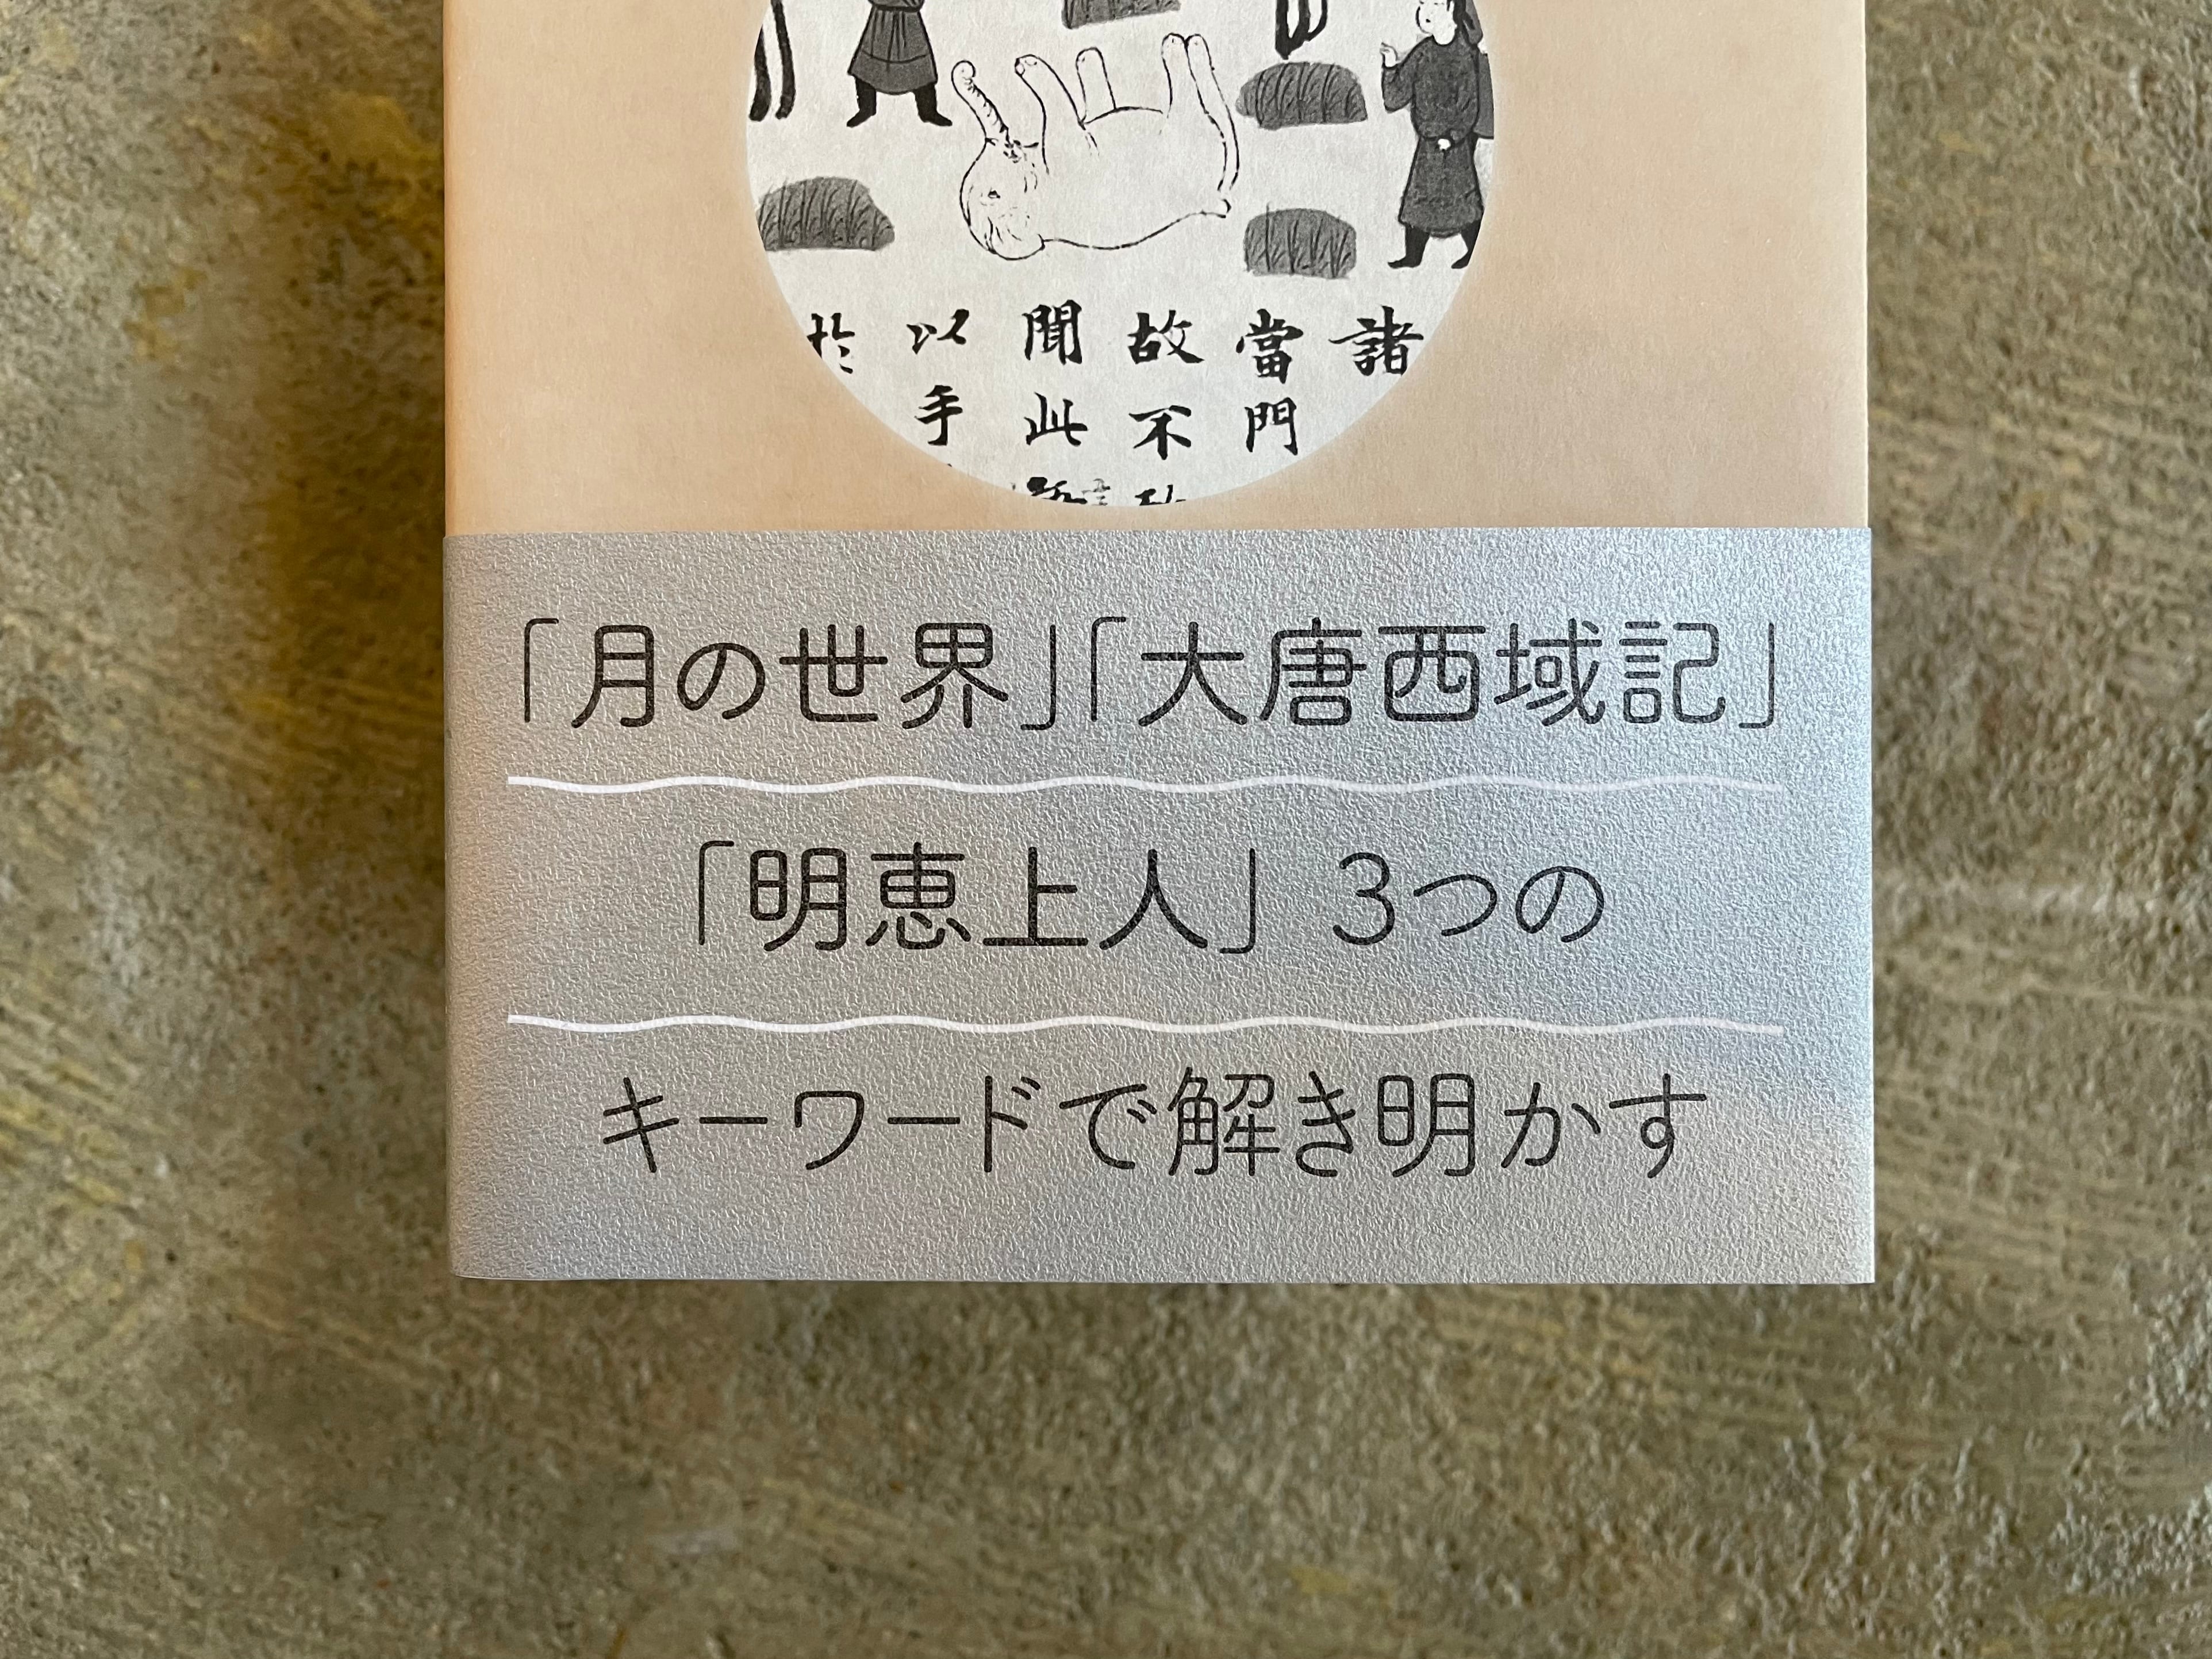 諸
當門
故不
聞此
以手
於
「月の世界」「大唐西域記」
「明恵上人」 3つの
キーワードで解き明かす